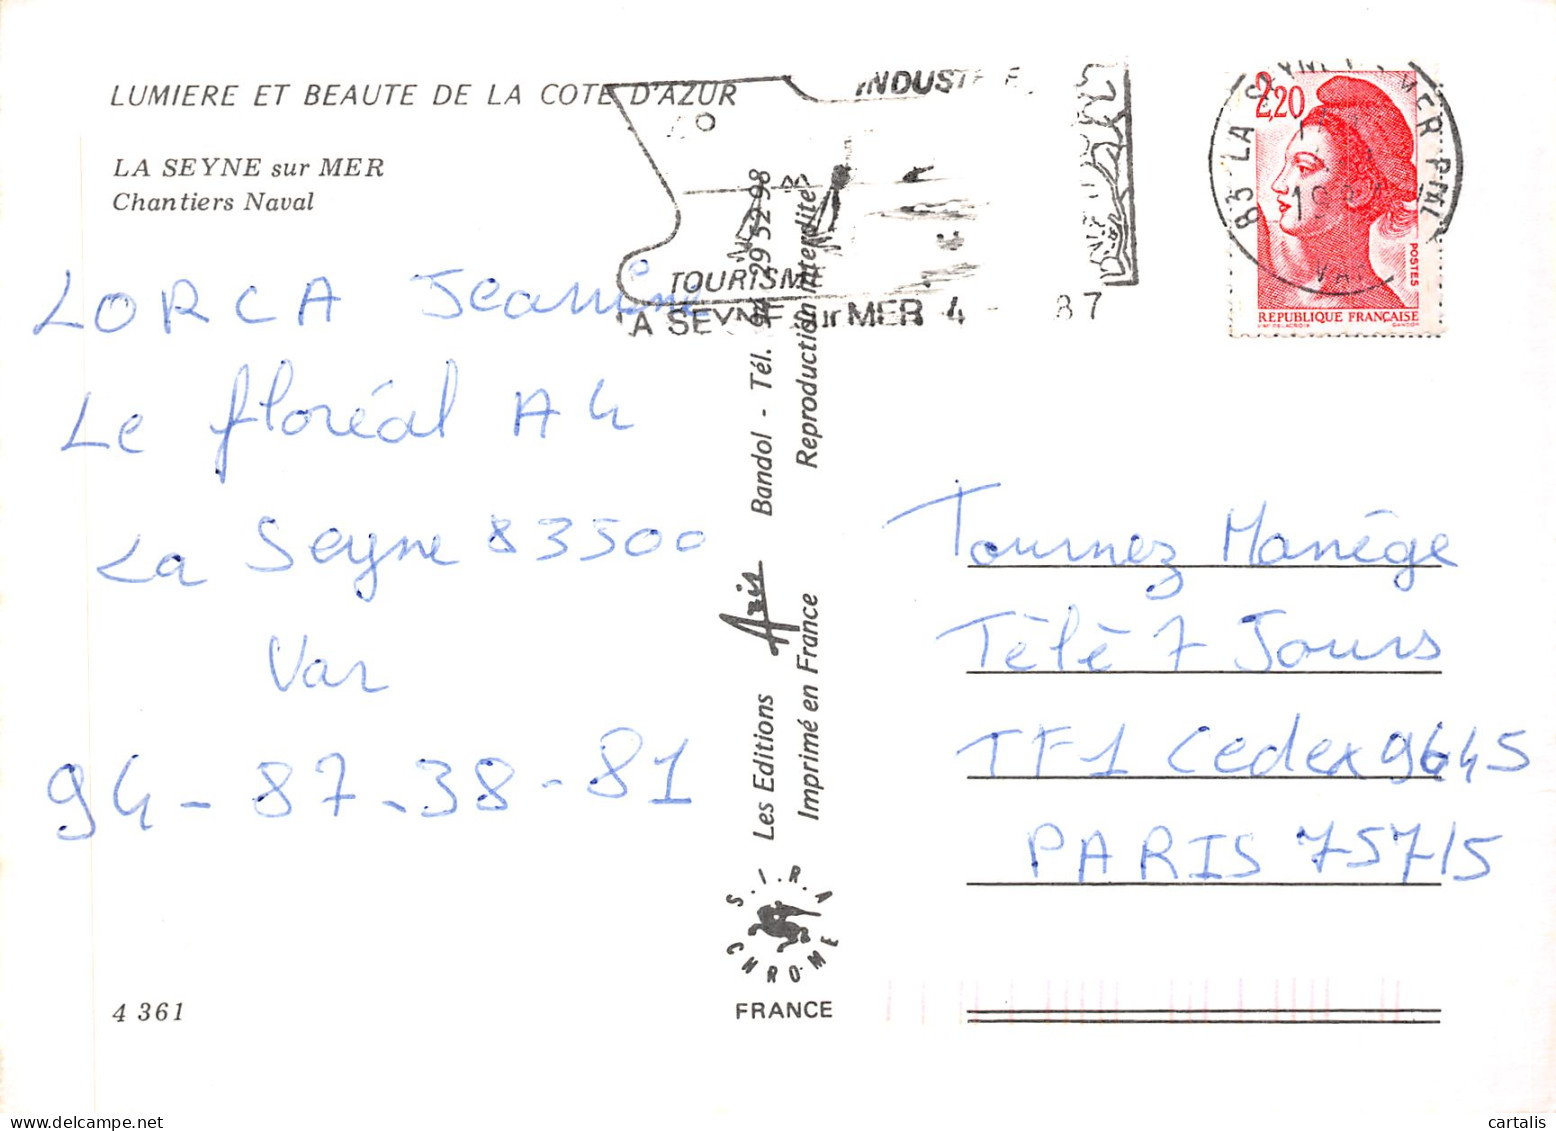 LUMIERE ET BEAUTE DE LA COTE D'AZUR
LA SEYNE sur MER
Chantiers Naval
TOURISME
MER 4 - 87
2,20
POSTES
REPUBLIQUE FRANÇAISE
83 LA SEYNE MER PPAL
VAR
LORCA Jeannine
Le floréal A4
La Seyne 83500
Var
94-87-38-81
Les Editions Azis Bandol - Tél. 94 29 52 98
Imprimé en France Reproduction interdite
Tournez Manège
Tèlè 7 Jours
TF1 Cedex 9645
PARIS 75715
S.I.R.A
CHROME
FRANCE
4 361
cartalis